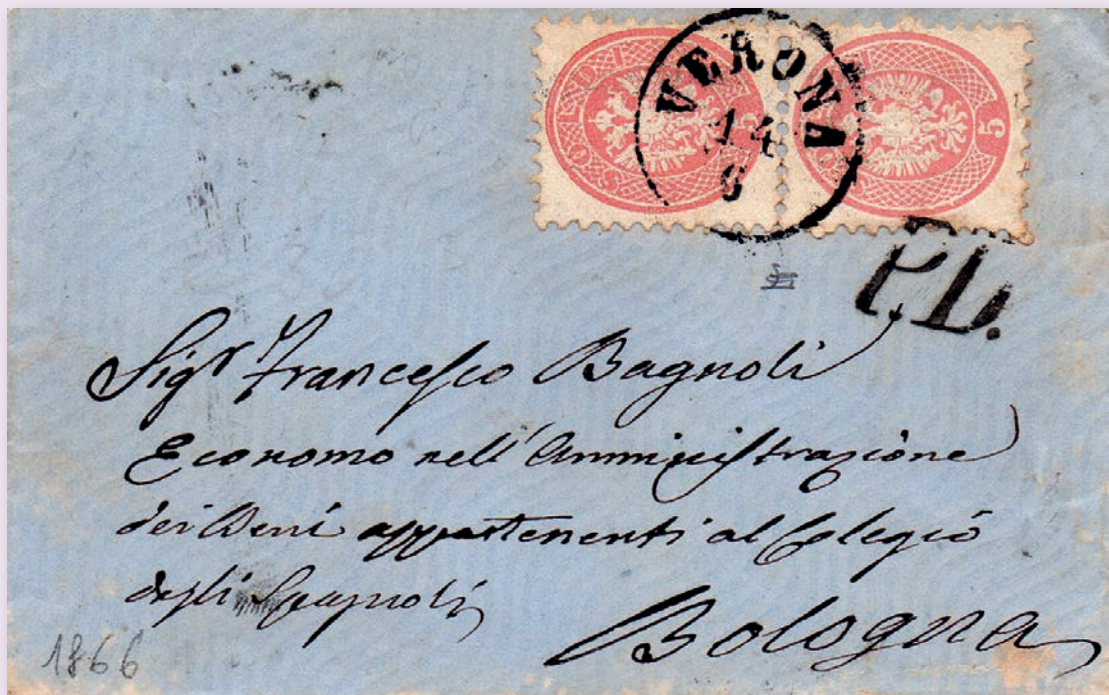 5 SOLDI 5
VERONA
14
6
P.D.
Sigr Francesco Bagnoli
Economo nell'Amministrazione
dei Beni appartenenti al Colegio
degli Spagnoli
Bologna
1866